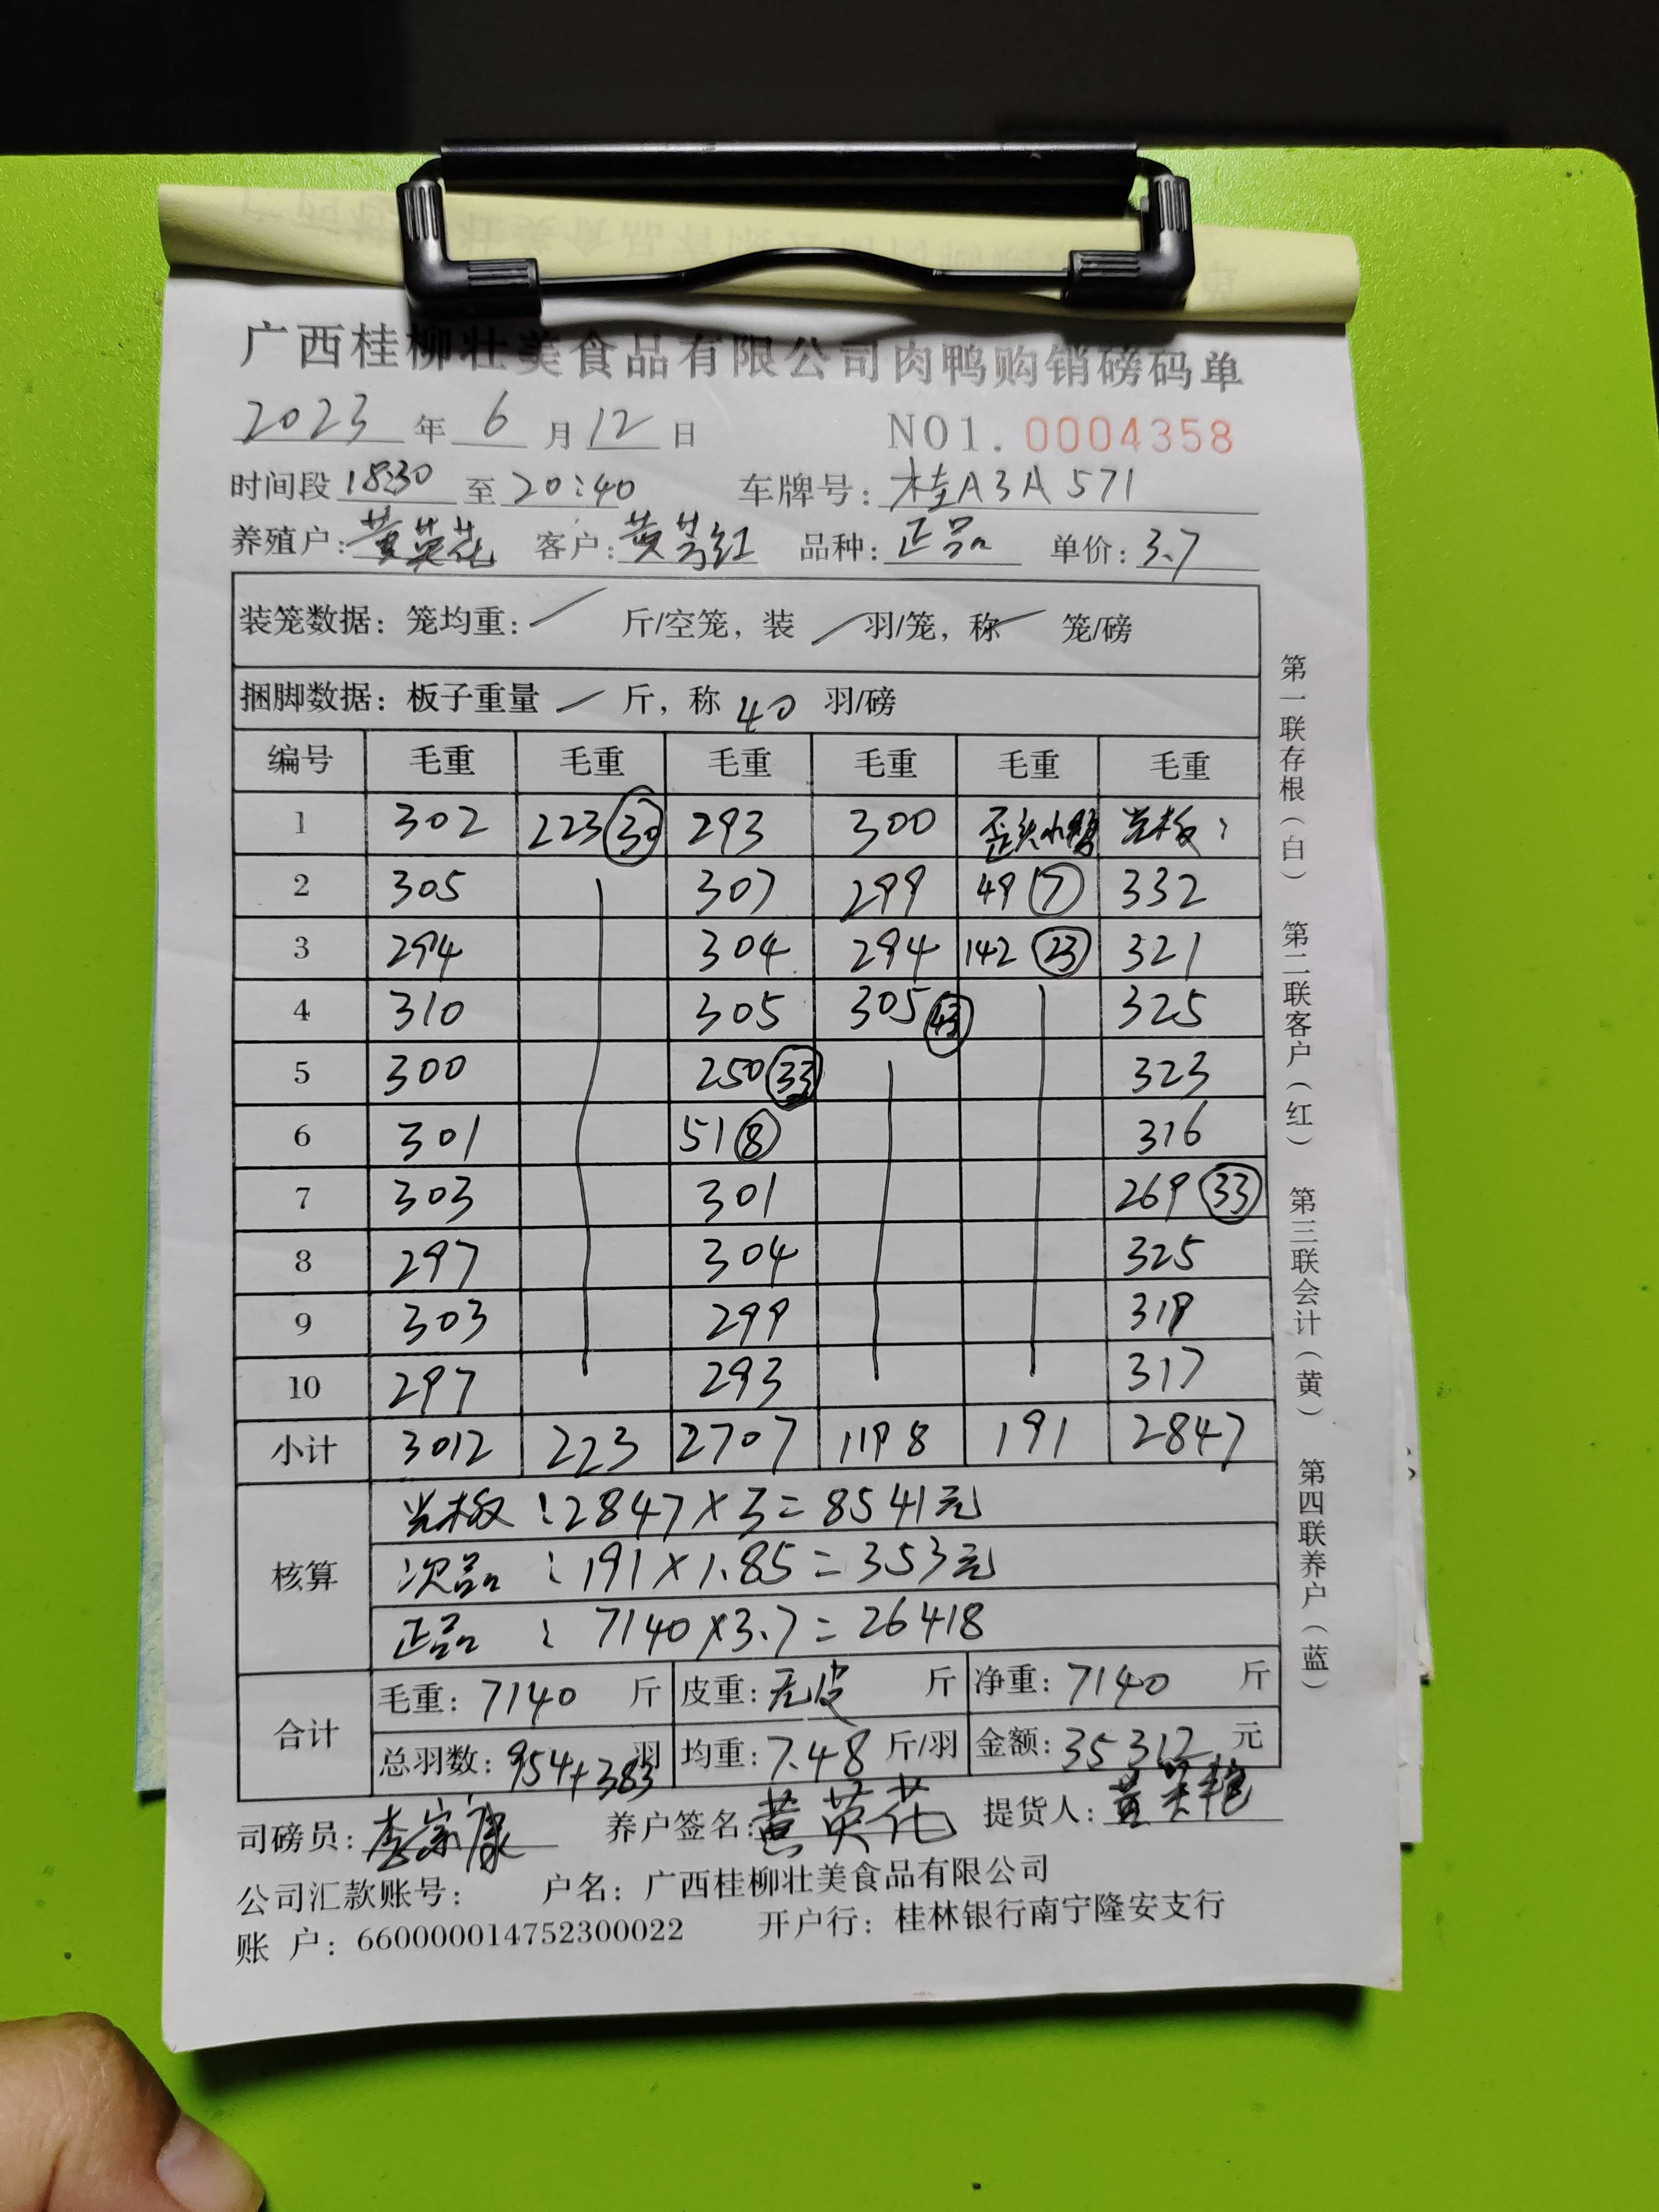 广西桂柳壮美食品有限公司肉鸭购销磅码单
2023 年 6 月 12 日 NO1. 0004358
时间段 18:30 至 20:40 车牌号: 桂A3A571
养殖户: 黄英花 客户: 黄 红 品种: 正品 单价: 3.7
装笼数据: 笼均重: 斤/空笼, 装 羽/笼, 称 笼/磅
捆脚数据: 板子重量 斤, 称 40 羽/磅
编号 毛重 毛重 毛重 毛重 毛重 毛重
1 302 223 30 293 300 歪头小鸭 光板:
2 305 307 299 49 7 332
3 294 304 294 142 23 321
4 310 305 305 43 325
5 300 250 33 323
6 301 51 8 316
7 303 301 269 33
8 297 304 325
9 303 299 319
10 297 293 317
小计 3012 223 2707 1198 191 2847
核算
光板:2847×3=8541元
次品:191×1.85=353元
正品:7140×3.7=26418
合计
毛重: 7140 斤 皮重: 无皮 斤 净重: 7140 斤
总羽数: 954+383 羽 均重: 7.48 斤/羽 金额: 35312 元
司磅员: 李宗康 养户签名: 黄英花 提货人: 黄
公司汇款账号: 户名: 广西桂柳壮美食品有限公司
账 户: 660000014752300022 开户行: 桂林银行南宁隆安支行
第一联存根(白) 第二联客户(红) 第三联会计(黄) 第四联养户(蓝)